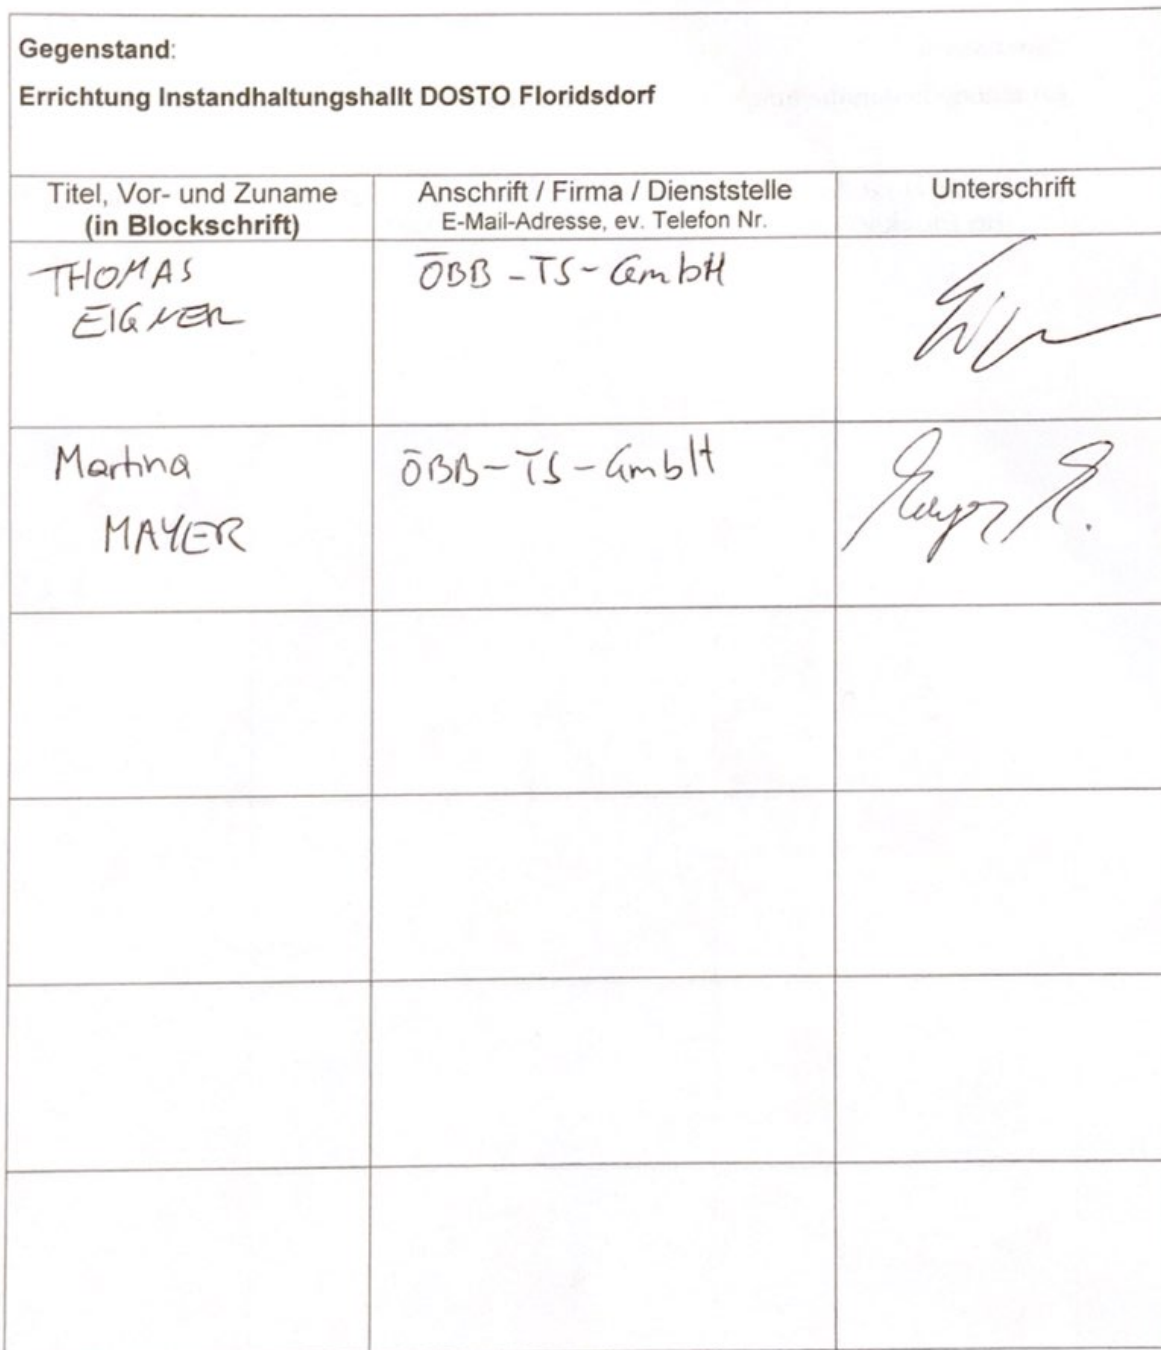 Gegenstand:
Errichtung Instandhaltungshallt DOSTO Floridsdorf
Titel, Vor- und Zuname
(in Blockschrift)
Anschrift / Firma / Dienststelle
E-Mail-Adresse, ev. Telefon Nr.
Unterschrift
THOMAS
EIGNER
ÖBB-TS-GmbH
Martina
MAYER
ÖBB-TS-GmbH